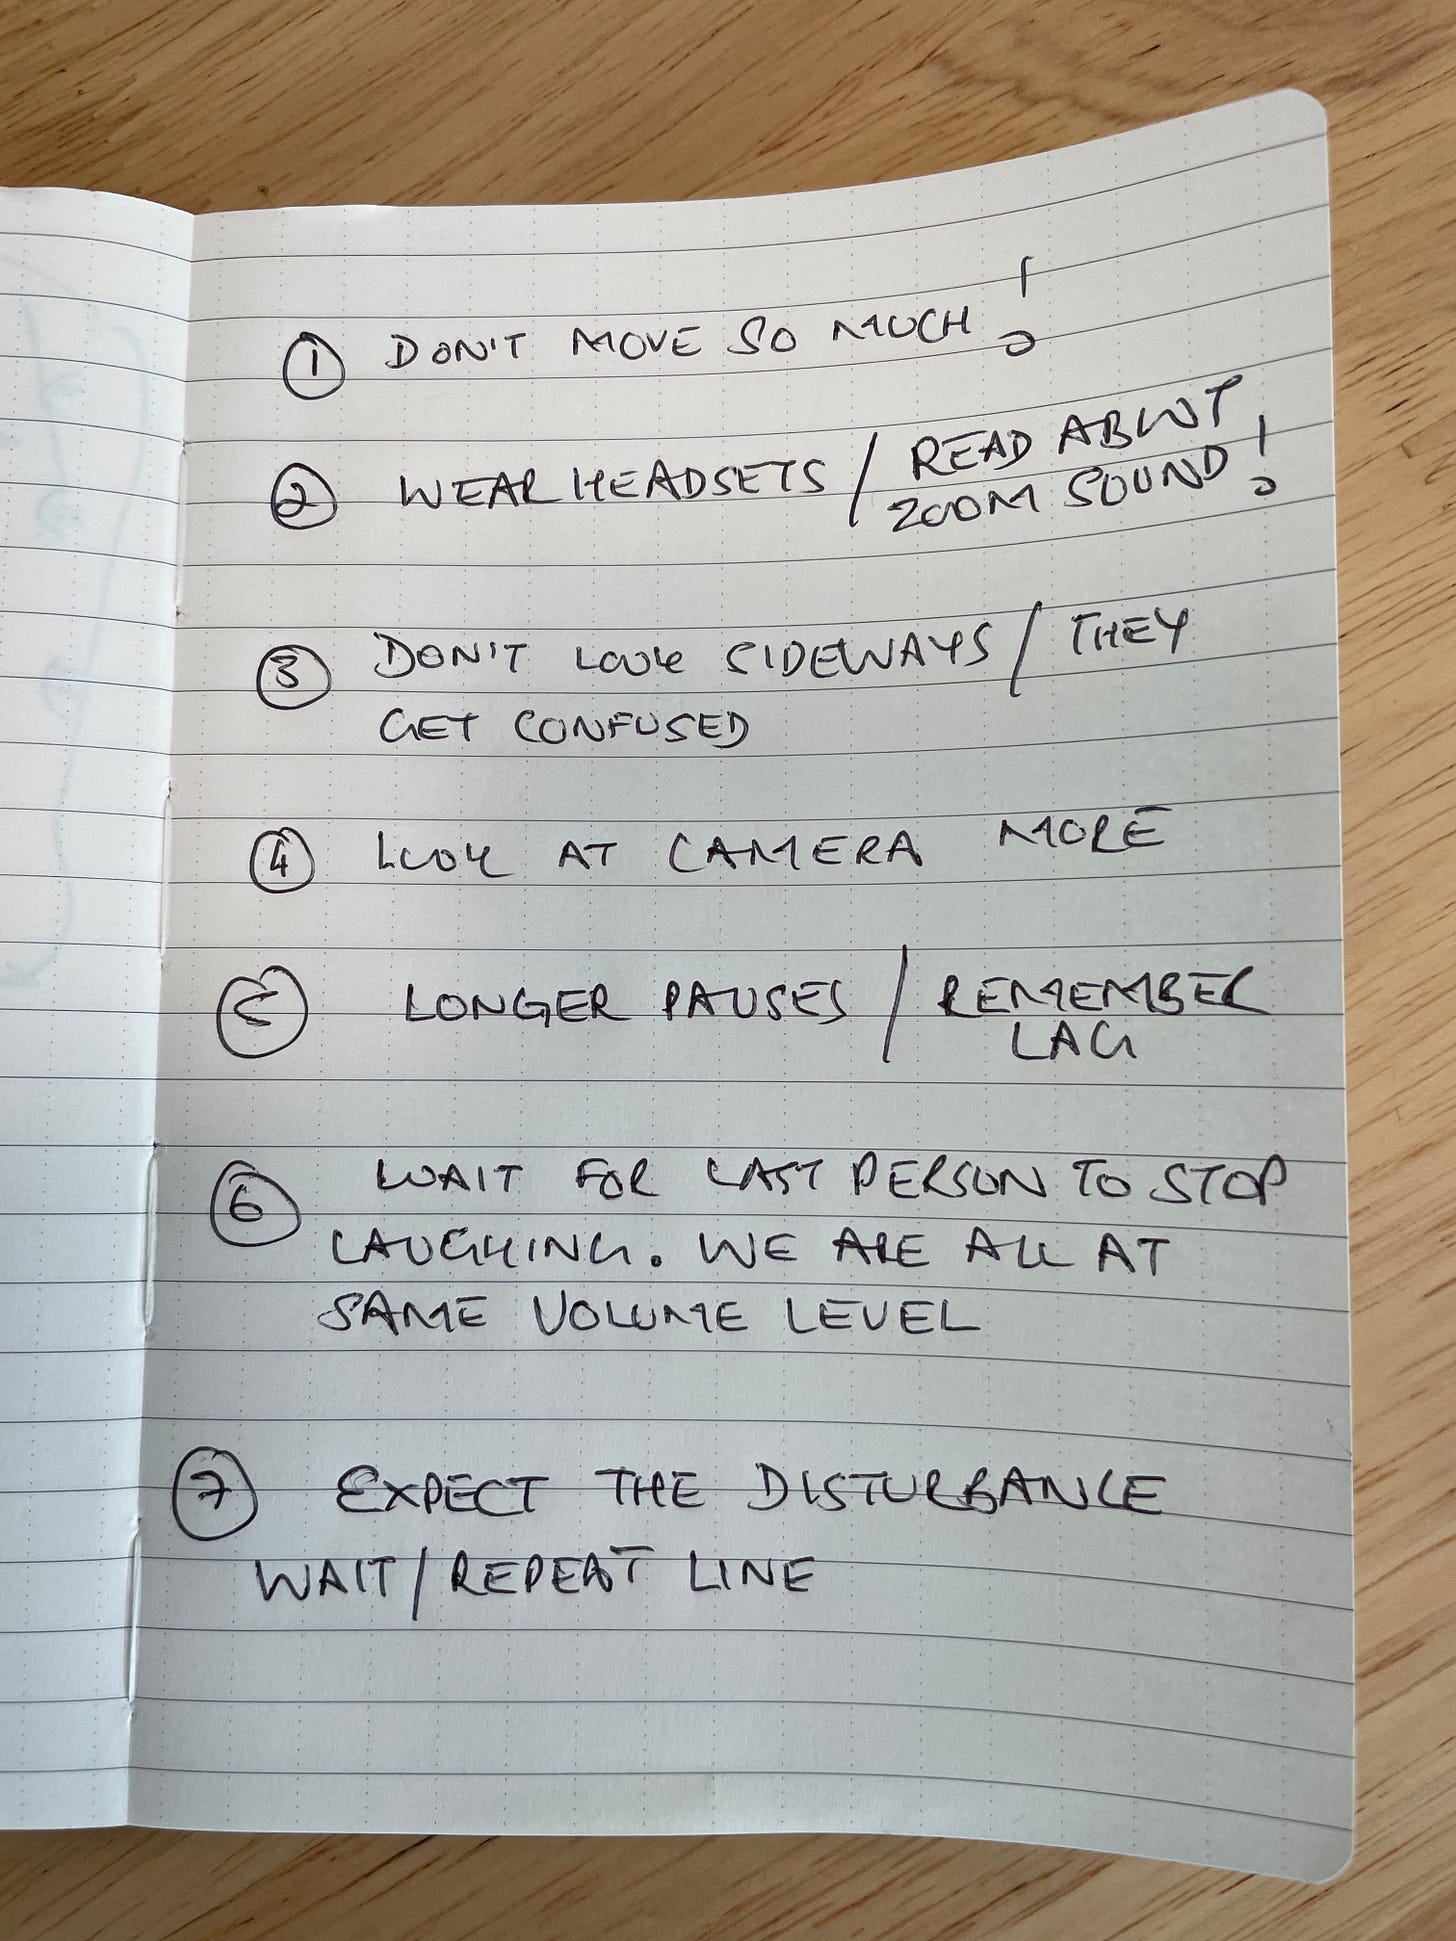 ① DON'T MOVE SO MUCH!
② WEAR HEADSETS / READ ABOUT
ZOOM SOUND!
③ DON'T LOOK SIDEWAYS / THEY
GET CONFUSED
④ LOOK AT CAMERA MORE
⑤ LONGER PAUSES / REMEMBER
LAG
⑥ WAIT FOR LAST PERSON TO STOP
LAUGHING. WE ARE ALL AT
SAME VOLUME LEVEL
⑦ EXPECT THE DISTURBANCE
WAIT/REPEAT LINE